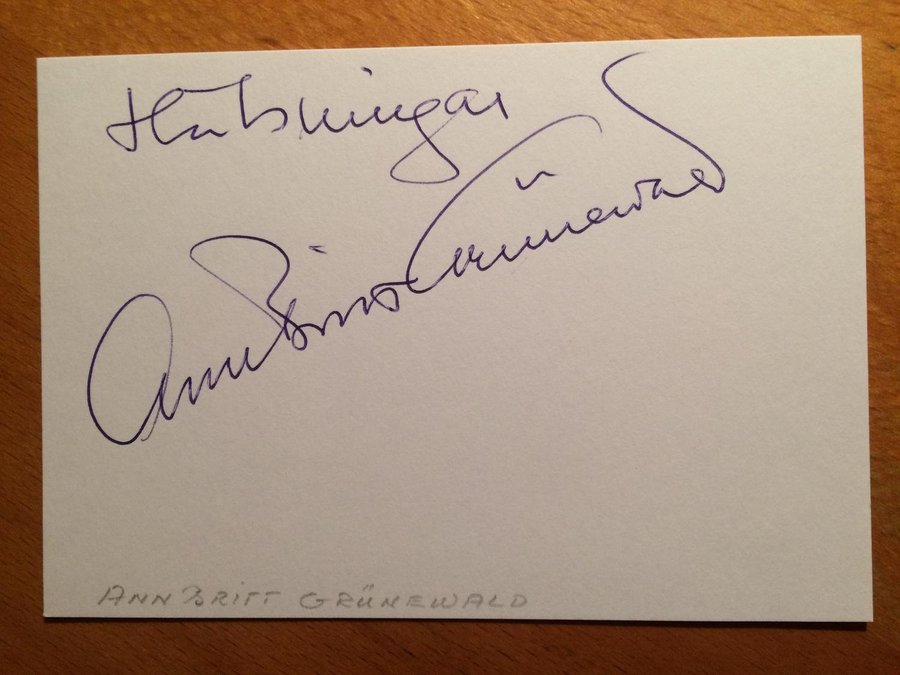 Hälsningar
Ann Britt Grünewald
ANN BRITT GRÜNEWALD